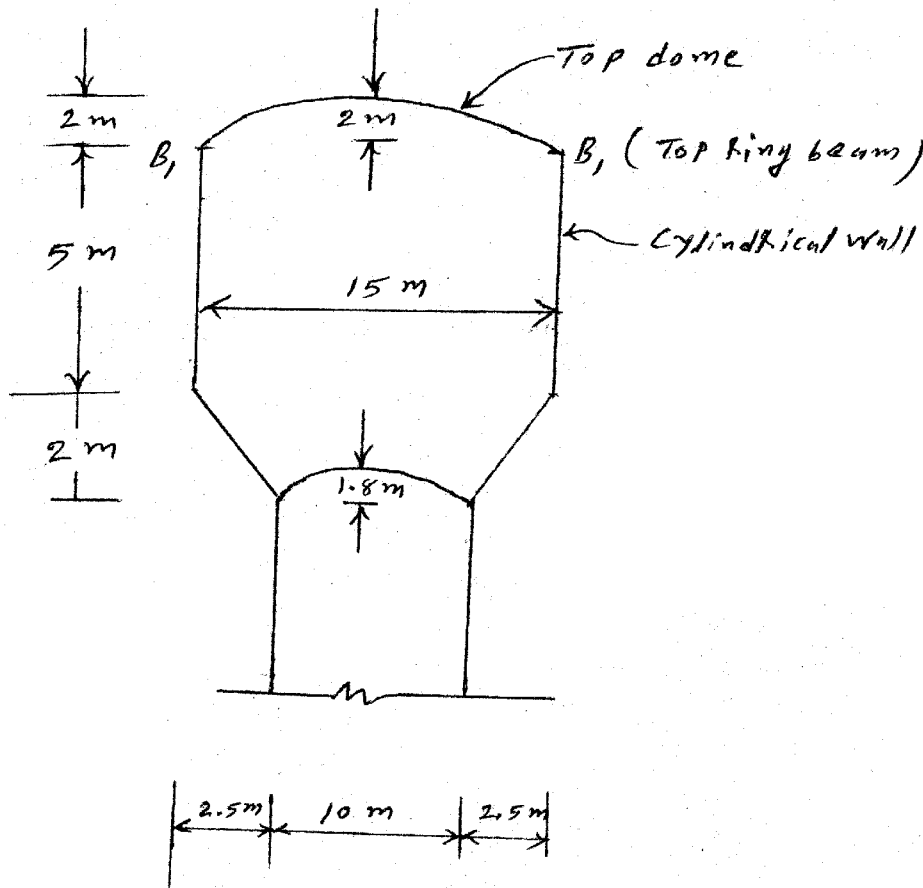 Top dome
2 m
2 m
B₁
B₁ (Top Ring beam)
Cylindrical Wall
5 m
15 m
2 m
1.8m
2.5m
10 m
2.5m